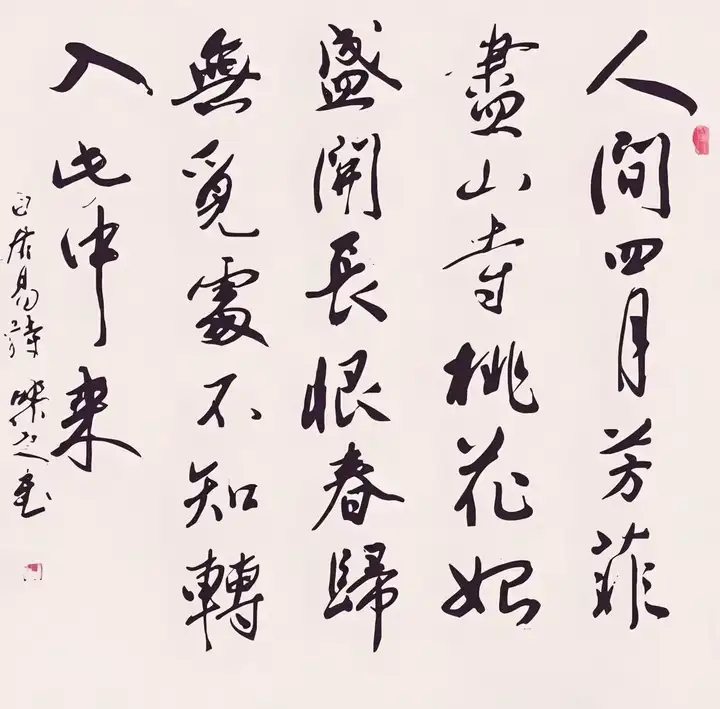 人間四月芳菲
盡山寺桃花始
盛開長恨春歸
無覓處不知轉
入此中来
白居易詩 樂之書